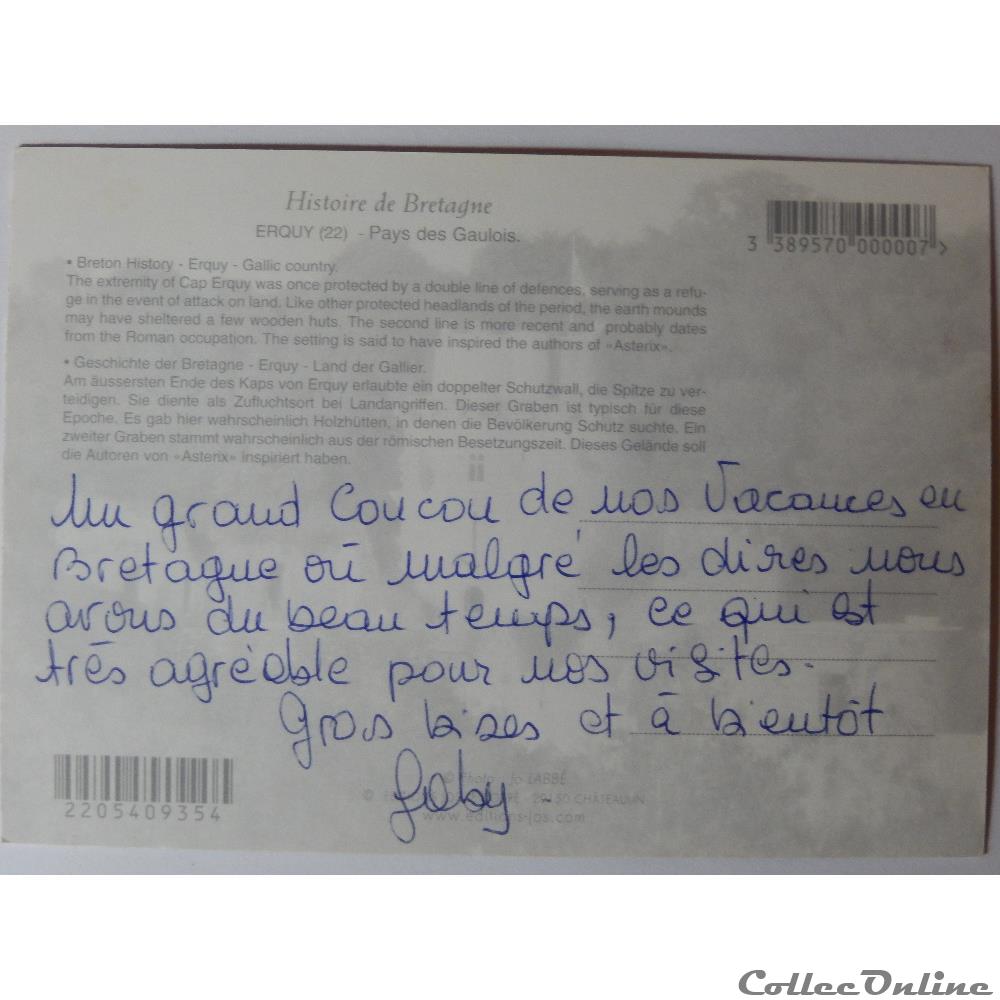 Histoire de Bretagne
ERQUY (22) - Pays des Gaulois.
3 389570 000007 >
• Breton History - Erquy - Gallic country.
The extremity of Cap Erquy was once protected by a double line of defences, serving as a refu-
ge in the event of attack on land. Like other protected headlands of the period, the earth mounds
may have sheltered a few wooden huts. The second line is more recent and probably dates
from the Roman occupation. The setting is said to have inspired the authors of «Asterix».
• Geschichte der Bretagne - Erquy - Land der Gallier.
Am äussersten Ende des Kaps von Erquy erlaubte ein doppelter Schutzwall, die Spitze zu ver-
teidigen. Sie diente als Zufluchtsort bei Landangriffen. Dieser Graben ist typisch für diese
Epoche. Es gab hier wahrscheinlich Holzhütten, in denen die Bevölkerung Schutz suchte. Ein
zweiter Graben stammt wahrscheinlich aus der römischen Besetzungszeit. Dieses Gelände soll
die Autoren von «Asterix» inspiriert haben.
Un grand Coucou de nos Vacances en
Bretagne où malgré les dires nous
avons du beau temps, ce qui est
très agréable pour nos visites.
Gros bises et à bientôt
Gaby
© Photo : Jo LABBÉ
29150 CHÂTEAULIN
www.editions-jos.com
2205409354
CollecOnline